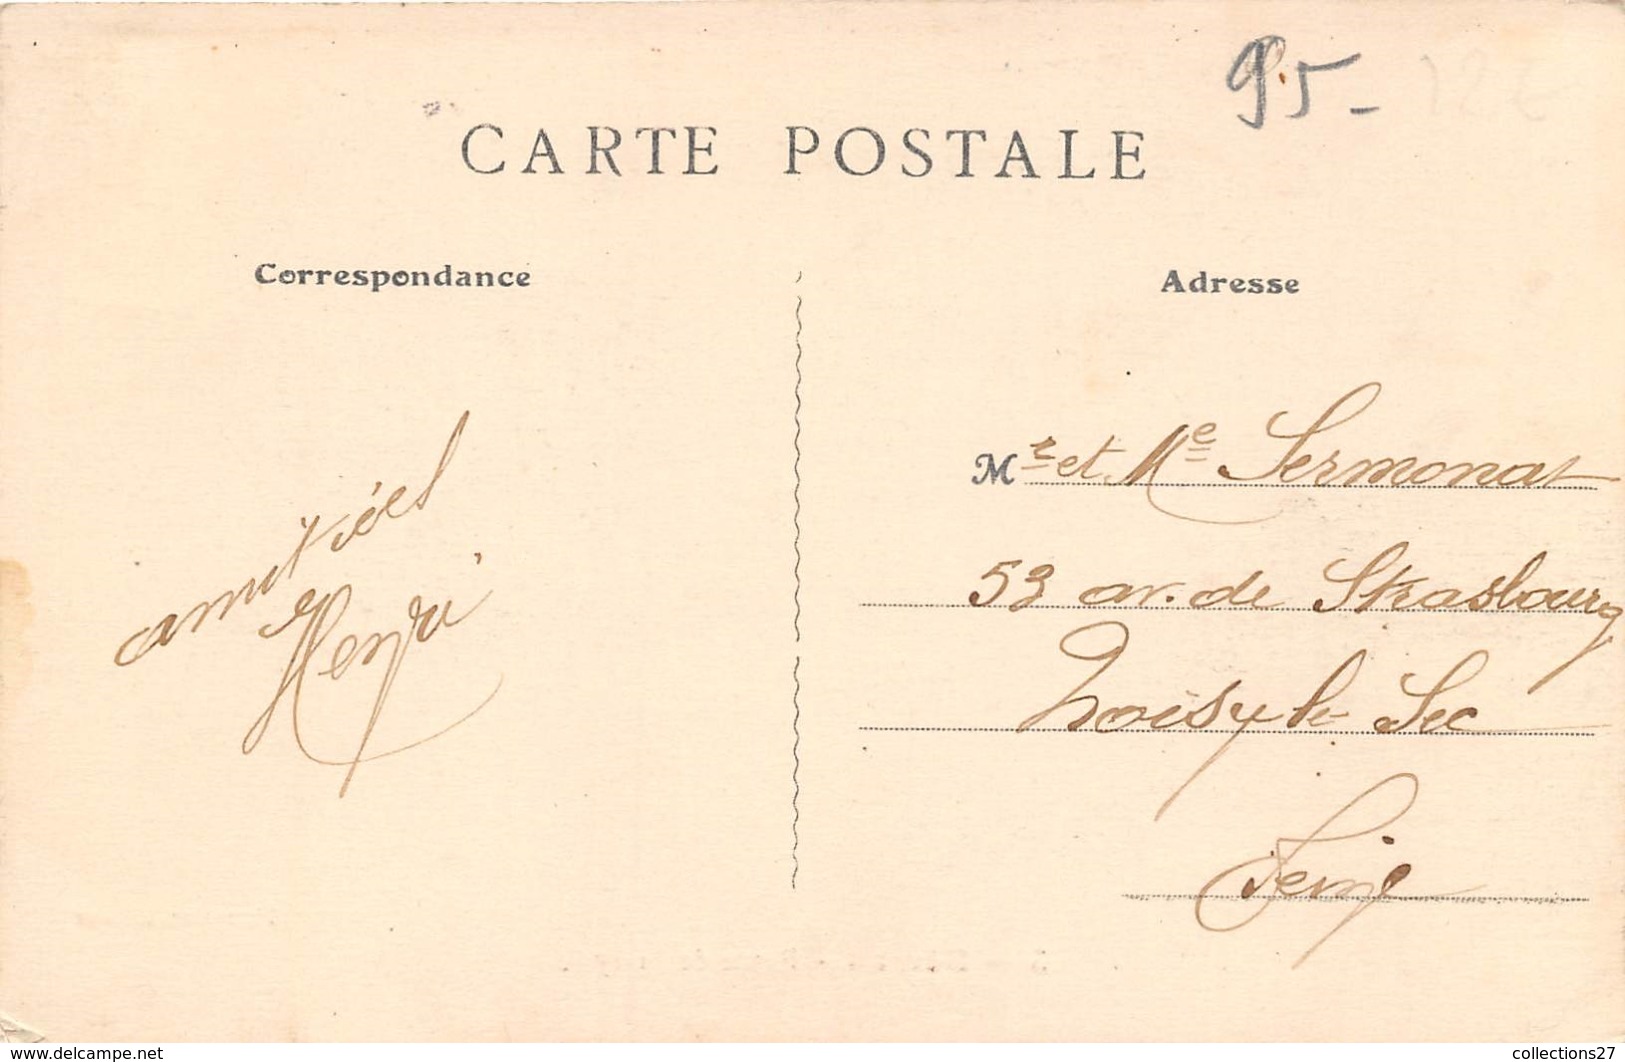 95-
CARTE POSTALE
Correspondance
amitiés
Henri
Adresse
Mr et Me Sermonat
53 av. de Strasbourg
Noisy le Sec
Seine
www.delcampe.net
collections27